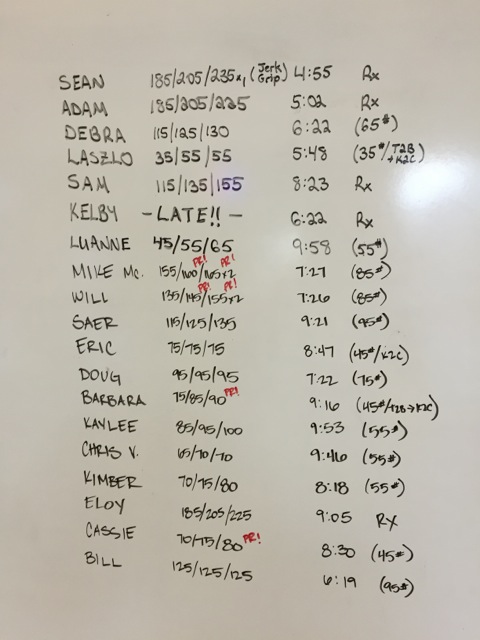 SEAN 185/205/235x1 (Jerk Grip) 4:55 Rx
ADAM 185/205/225 5:02 Rx
DEBRA 115/125/130 6:22 (65#)
LASZLO 35/55/55 5:48 (35#/T2B→K2C)
SAM 115/135/155 8:23 Rx
KELBY -LATE!!- 6:22 Rx
LUANNE 45/55/65 9:58 (55#)
MIKE Mc. 155/160 PR!/165x2 PR! 7:27 (85#)
WILL 135/145 PR!/155x2 PR! 7:26 (85#)
SAER 115/125/135 9:21 (95#)
ERIC 75/75/75 8:47 (45#/K2C)
DOUG 95/95/95 7:22 (75#)
BARBARA 75/85/90 PR! 9:16 (45#/T2B→K2C)
KAYLEE 85/95/100 9:53 (55#)
CHRIS V. 65/70/70 9:46 (55#)
KIMBER 70/75/80 8:18 (55#)
ELOY 185/205/225 9:05 RX
CASSIE 70/75/80 PR! 8:30 (45#)
BILL 125/125/125 6:19 (95#)